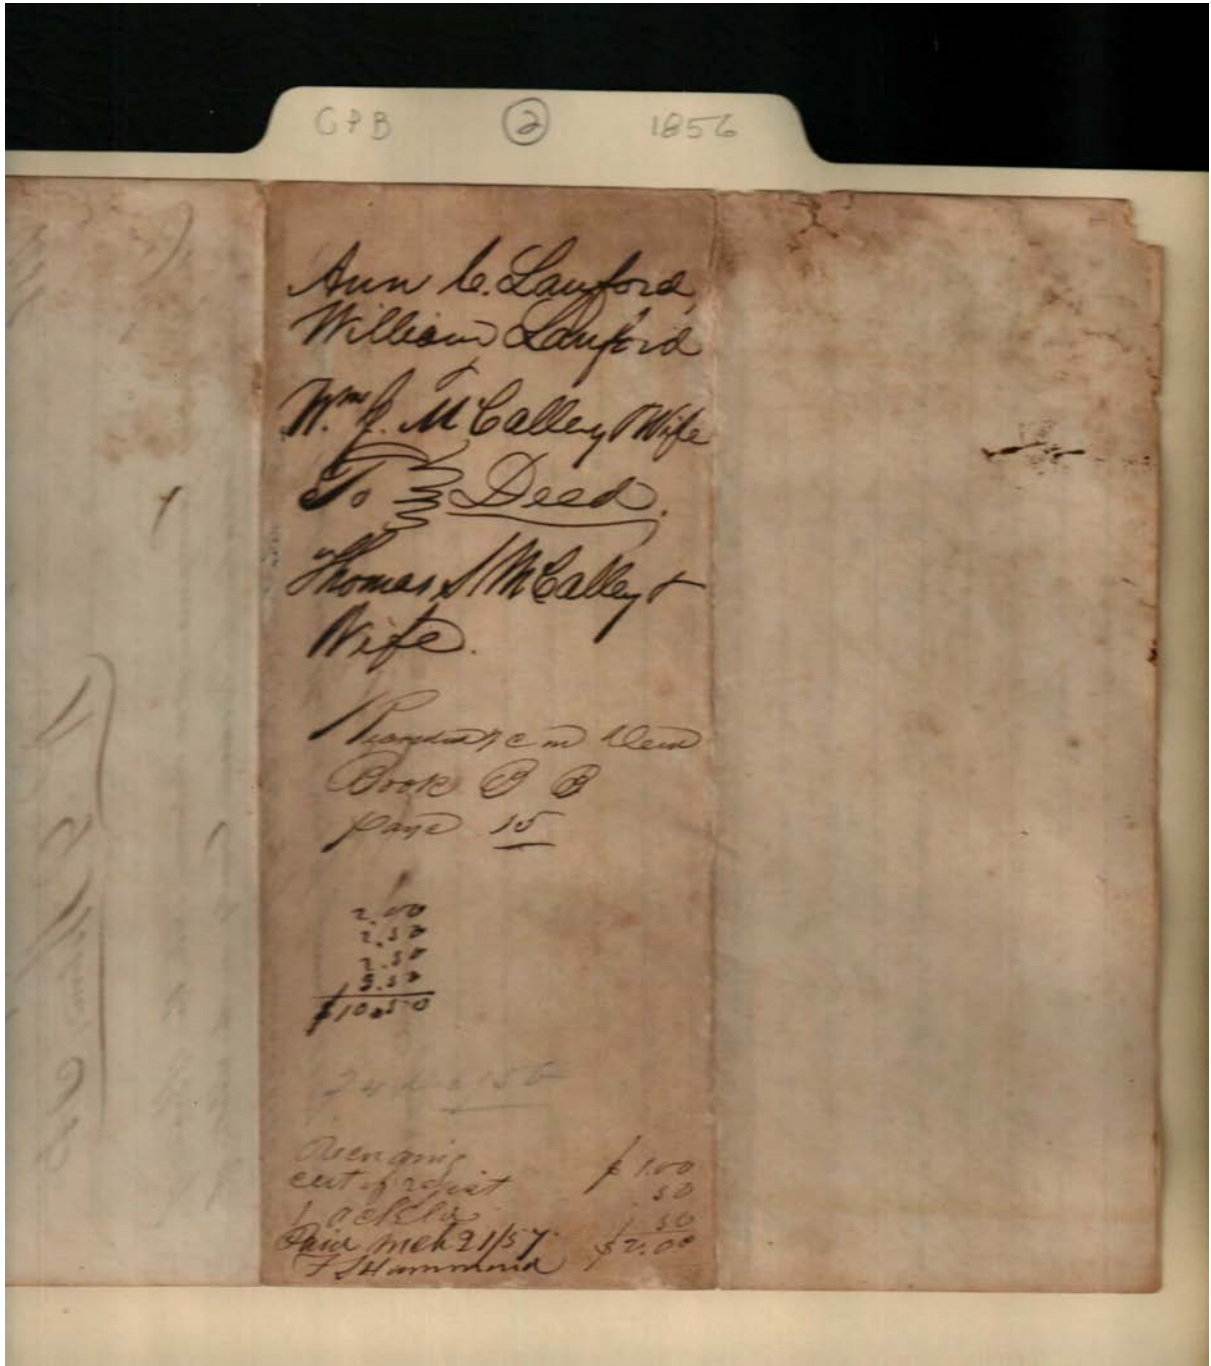 CPB 2 1856
Ann C. Lanford,
William Lanford
&
Wm. J. McCalley & Wife
To Deed.
Thomas S McCalley &
Wife.
Recorded in Deed
Book B B
page 15
2.00
2.50
2.50
3.50
$10.50
Recording $1.00
cert of regist 50
1 ack 50
Paid Mch 21/57. $2.00
F S Hammond